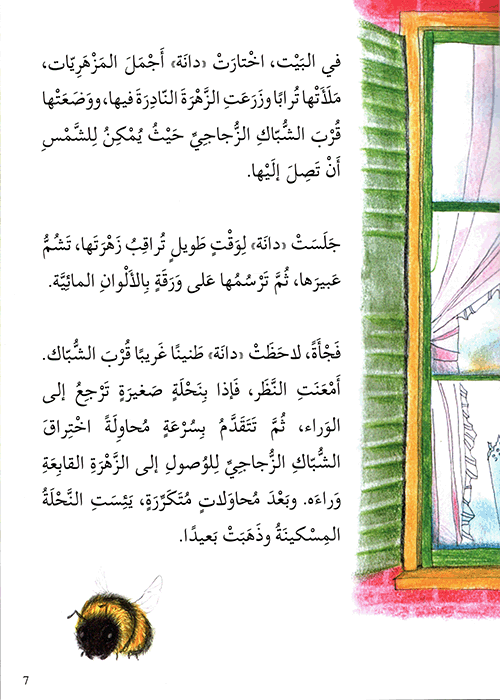 في البَيْت، اخْتارَتْ «دانَة» أَجْمَلَ المَزْهَرِيّات،
مَلَأَتْها تُرابًا وزَرَعَتِ الزَّهْرَةَ النّادِرَةَ فيها، ووَضَعَتْها
قُرْبَ الشُّبّاكِ الزُّجاجِيِّ حَيْثُ يُمْكِنُ لِلشَّمْسِ
أَنْ تَصِلَ إلَيْها.
جَلَسَتْ «دانَة» لِوَقْتٍ طَويلٍ تُراقِبُ زَهْرَتَها، تَشُمُّ
عَبيرَها، ثُمَّ تَرْسُمُها عَلى وَرَقَةٍ بِالأَلْوانِ المائِيَّة.
فَجْأَةً، لاحَظَتْ «دانَة» طَنينًا غَريبًا قُرْبَ الشُّبّاك.
أَمْعَنَتِ النَّظَر، فَإذا بِنَحْلَةٍ صَغيرَةٍ تَرْجِعُ إلى
الوَراء، ثُمَّ تَتَقَدَّمُ بِسُرْعَةٍ مُحاوِلَةً اخْتِراقَ
الشُّبّاكِ الزُّجاجِيِّ لِلْوُصولِ إلى الزَّهْرَةِ القابِعَةِ
وَراءَه. وبَعْدَ مُحاوَلاتٍ مُتَكَرِّرَةٍ، يَئِسَتِ النَّحْلَةُ
المِسْكينَةُ وذَهَبَتْ بَعيدًا.
7